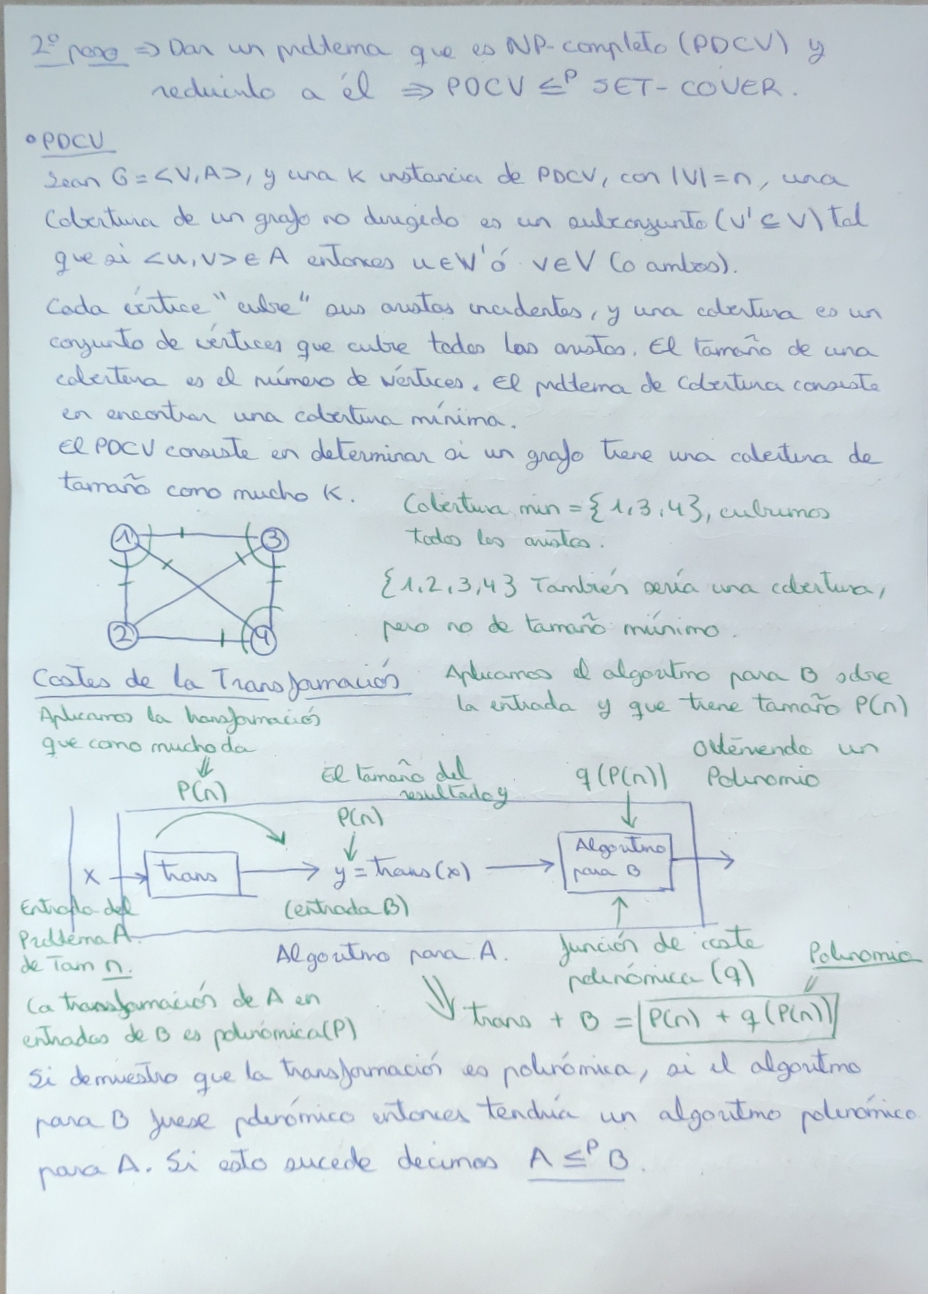 2º paso ⇒ Dar un problema que es NP-completo (PDCV) y
reducirlo a él ⇒ PDCV ≤ᴾ SET-COVER.
• PDCV
Sean G = <V,A>, y una K instancia de PDCV, con |V| = n, una
Cobertura de un grafo no dirigido es un subconjunto (V' ⊆ V) tal
que si <u,v> ∈ A entonces u ∈ V' ó v ∈ V (o ambos).
Cada vértice "cubre" sus aristas incidentes, y una cobertura es un
conjunto de vértices que cubre todas las aristas. El tamaño de una
cobertura es el número de vértices. El problema de Cobertura consiste
en encontrar una cobertura mínima.
El PDCV consiste en determinar si un grafo tiene una cobertura de
tamaño como mucho K.
Cobertura min = {1,3,4}, cubrimos
todas las aristas.
{1,2,3,4} También sería una cobertura,
pero no de tamaño mínimo.
1 3
2 4
Costes de la Transformación
Aplicamos la transformación
que como mucho da
P(n)
Aplicamos el algoritmo para B sobre
la entrada y que tiene tamaño P(n)
Obteniendo un
Polinomio
El tamaño del
resultado y
P(n)
q(P(n))
x trans y = trans(x) Algoritmo
para B
(entrada B)
Entrada del
Problema A.
de Tam n.
Algoritmo para A.
función de coste
polinómica (q)
Polinomio
La transformación de A en
entradas de B es polinómica (P)
trans + B = P(n) + q(P(n))
Si demuestro que la transformación es polinómica, si el algoritmo
para B fuese polinómico entonces tendría un algoritmo polinómico
para A. Si esto sucede decimos A ≤ᴾ B.